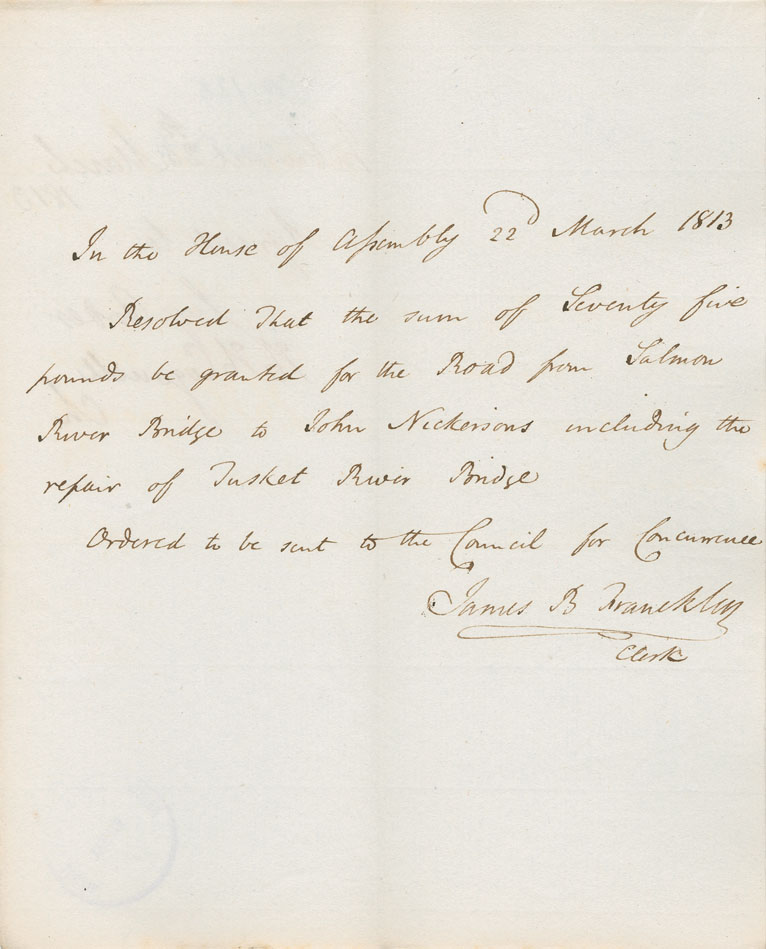 In the House of Assembly 22d March 1813
Resolved That the sum of Seventy five
pounds be granted for the Road from Salmon
River Bridge to John Nickersons including the
repair of Tusket River Bridge
Ordered to be sent to the Council for Concurrence
James B Francklin
Clerk